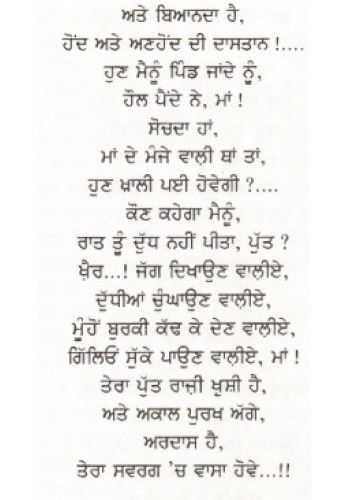 ਅਤੇ ਬਿਆਨਦਾ ਹੈ,
ਹੋਂਦ ਅਤੇ ਅਣਹੋਂਦ ਦੀ ਦਾਸਤਾਨ !....
ਹੁਣ ਮੈਨੂੰ ਪਿੰਡ ਜਾਂਦੇ ਨੂੰ,
ਹੌਲ ਪੈਂਦੇ ਨੇ, ਮਾਂ !
ਸੋਚਦਾ ਹਾਂ,
ਮਾਂ ਦੇ ਮੰਜੇ ਵਾਲੀ ਥਾਂ ਤਾਂ,
ਹੁਣ ਖ਼ਾਲੀ ਪਈ ਹੋਵੇਗੀ ?....
ਕੌਣ ਕਹੇਗਾ ਮੈਨੂੰ,
ਰਾਤ ਤੂੰ ਦੁੱਧ ਨਹੀਂ ਪੀਤਾ, ਪੁੱਤ ?
ਖ਼ੈਰ...! ਜੱਗ ਦਿਖਾਉਣ ਵਾਲੀਏ,
ਦੁੱਧੀਆਂ ਚੁੰਘਾਉਣ ਵਾਲੀਏ,
ਮੂੰਹੋਂ ਬੁਰਕੀ ਕੱਢ ਕੇ ਦੇਣ ਵਾਲੀਏ,
ਗਿੱਲਿਓਂ ਸੁੱਕੇ ਪਾਉਣ ਵਾਲੀਏ, ਮਾਂ !
ਤੇਰਾ ਪੁੱਤ ਰਾਜ਼ੀ ਖ਼ੁਸ਼ੀ ਹੈ,
ਅਤੇ ਅਕਾਲ ਪੁਰਖ ਅੱਗੇ,
ਅਰਦਾਸ ਹੈ,
ਤੇਰਾ ਸਵਰਗ 'ਚ ਵਾਸਾ ਹੋਵੇ...!!